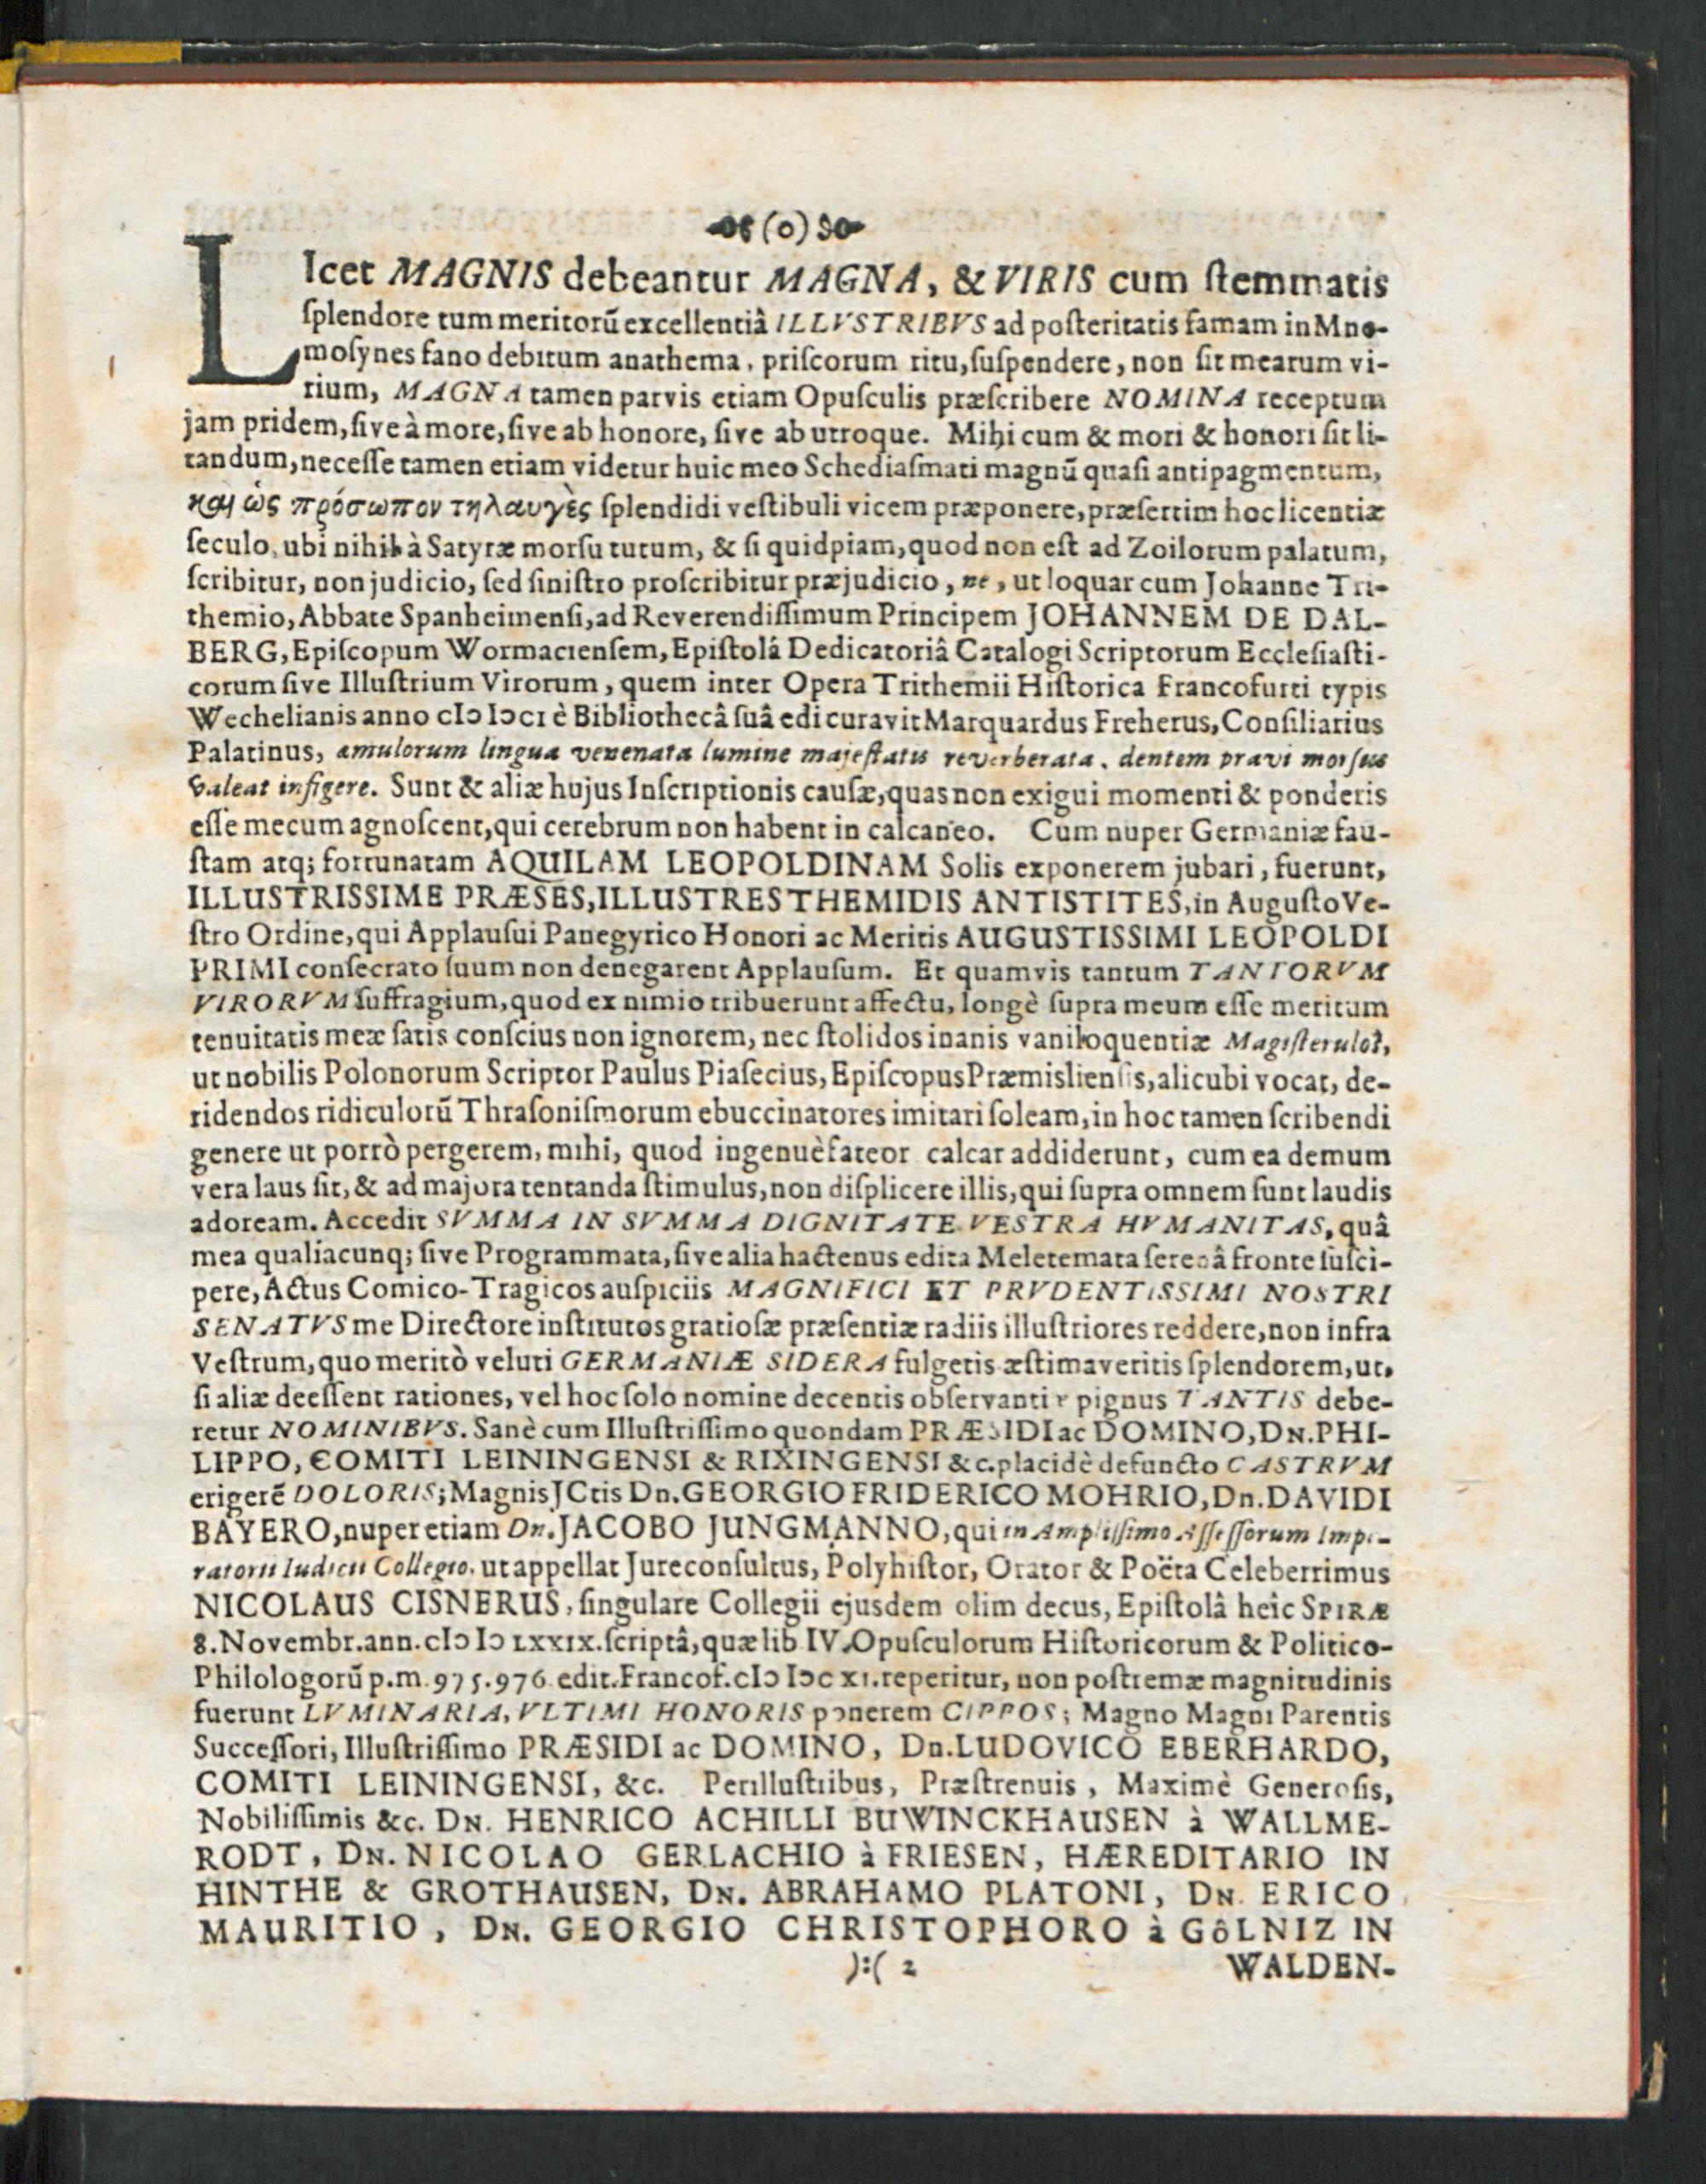 (o)
LIcet MAGNIS debeantur MAGNA, & VIRIS cum ſtemmatis
ſplendore tum meritorũ excellentiâ ILLVSTRIBVS ad poſteritatis famam in Mne-
moſynes fano debitum anathema, priſcorum ritu, ſuſpendere, non ſit mearum vi-
rium, MAGNA tamen parvis etiam Opuſculis præſcribere NOMINA receptum
jam pridem, ſive à more, ſive ab honore, ſive ab utroque. Mihi cum & mori & honori ſit li-
tandum, neceſſe tamen etiam videtur huic meo Schediaſmati magnũ quaſi antipagmentum,
καὶ ὡς πρόσωπον τηλαυγὲς ſplendidi veſtibuli vicem præponere, præſertim hoc licentiæ
ſeculo, ubi nihil à Satyræ morſu tutum, & ſi quidpiam, quod non eſt ad Zoilorum palatum,
ſcribitur, non judicio, ſed ſiniſtro proſcribitur præjudicio, ne, ut loquar cum Johanne Tri-
themio, Abbate Spanheimenſi, ad Reverendiſſimum Principem JOHANNEM DE DAL-
BERG, Epiſcopum Wormacienſem, Epiſtolá Dedicatoriâ Catalogi Scriptorum Eccleſiaſti-
corum ſive Illuſtrium Virorum, quem inter Opera Trithemii Hiſtorica Francofurti typis
Wechelianis anno cIɔ Iɔcı è Bibliothecâ ſuâ edi curavit Marquardus Freherus, Conſiliarius
Palatinus, æmulorum lingua venenata lumine majeſtatis reverberata, dentem pravi morſus
valeat infigere. Sunt & aliæ hujus Inſcriptionis cauſæ, quas non exigui momenti & ponderis
eſſe mecum agnoſcent, qui cerebrum non habent in calcaneo. Cum nuper Germaniæ fau-
ſtam atq; fortunatam AQUILAM LEOPOLDINAM Solis exponerem jubari, fuerunt,
ILLUSTRISSIME PRÆSES, ILLUSTRES THEMIDIS ANTISTITES, in Auguſto Ve-
ſtro Ordine, qui Applauſui Panegyrico Honori ac Meritis AUGUSTISSIMI LEOPOLDI
PRIMI conſecrato ſuum non denegarent Applauſum. Et quamvis tantum TANTORVM
VIRORVM ſuffragium, quod ex nimio tribuerunt affectu, longè ſupra meum eſſe meritum
tenuitatis meæ ſatis conſcius non ignorem, nec ſtolidos inanis vaniloquentiæ Magiſterulos,
ut nobilis Polonorum Scriptor Paulus Piaſecius, Epiſcopus Præmislienſis, alicubi vocat, de-
ridendos ridiculorũ Thraſoniſmorum ebuccinatores imitari ſoleam, in hoc tamen ſcribendi
genere ut porrò pergerem, mihi, quod ingenuè fateor calcar addiderunt, cum ea demum
vera laus ſit, & ad majora tentanda ſtimulus, non diſplicere illis, qui ſupra omnem ſunt laudis
adoream. Accedit SVMMA IN SVMMA DIGNITATE VESTRA HVMANITAS, quâ
mea qualiacunq; ſive Programmata, ſive alia hactenus edita Meletemata ſerenâ fronte ſuſci-
pere, Actus Comico-Tragicos auſpiciis MAGNIFICI ET PRVDENTISSIMI NOSTRI
SENATVS me Directore inſtitutos gratioſæ præſentiæ radiis illuſtriores reddere, non infra
Veſtrum, quo meritò veluti GERMANIÆ SIDERA fulgetis æſtimaveritis ſplendorem, ut,
ſi aliæ deeſſent rationes, vel hoc ſolo nomine decentis obſervantiæ pignus TANTIS debe-
retur NOMINIBVS. Sanè cum Illuſtriſſimo quondam PRÆSIDI ac DOMINO, DN. PHI-
LIPPO, COMITI LEININGENSI & RIXINGENSI &c. placidè defuncto CASTRVM
erigerẽ DOLORIS; Magnis JCtis Dn. GEORGIO FRIDERICO MOHRIO, Dn. DAVIDI
BAYERO, nuper etiam Dn. JACOBO JUNGMANNO, qui in Ampliſſimo Aſſeſſorum Impe-
ratorii Iudicii Collegio, ut appellat Jureconſultus, Polyhiſtor, Orator & Poëta Celeberrimus
NICOLAUS CISNERUS, ſingulare Collegii ejusdem olim decus, Epiſtolâ heîc SPIRÆ
8. Novembr. ann. cIɔ Iɔ LXXIX. ſcriptâ, quæ lib IV. Opuſculorum Hiſtoricorum & Politico-
Philologorũ p. m. 975. 976. edit. Francof. cIɔ Iɔc XI. reperitur, non poſtremæ magnitudinis
fuerunt LVMINARIA, VLTIMI HONORIS ponerem CIPPOS; Magno Magni Parentis
Succeſſori, Illuſtriſſimo PRÆSIDI ac DOMINO, Dn. LUDOVICO EBERHARDO,
COMITI LEININGENSI, &c. Perilluſtribus, Præſtrenuis, Maximè Generoſis,
Nobiliſſimis &c. DN. HENRICO ACHILLI BUWINCKHAUSEN à WALLME-
RODT, DN. NICOLAO GERLACHIO à FRIESEN, HÆREDITARIO IN
HINTHE & GROTHAUSEN, DN. ABRAHAMO PLATONI, DN. ERICO
MAURITIO, DN. GEORGIO CHRISTOPHORO à GôLNIZ IN
):( 2 WALDEN-